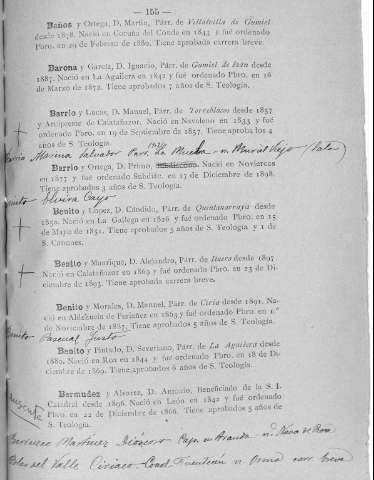 — 155 —
Baños y Ortega, D. Martín, Párr. de Villalvilla de Gumiel
desde 1878. Nació en Coruña del Conde en 1843 y fué ordenado
Pbro. en 29 de Febrero de 1880. Tiene aprobada carrera breve.
Barona y García, D. Ignacio, Párr. de Gumiel de Izán desde
1887. Nació en La Aguilera en 1842 y fué ordenado Pbro. en 16
de Marzo de 1872. Tiene aprobados 7 años de S. Teología.
Barrio y Lucas, D. Manuel, Párr. de Torreblacos desde 1857
y Arcipreste de Calatañazor. Nació en Navaleno en 1833 y fué
ordenado Pbro. en 19 de Septiembre de 1857. Tiene aprobados 4
años de S. Teología.
Moreno Salvador Parr. La
Barrio y Ortega, D. Primo, Nació en Noviercas
en 1877 y fué Subdiac. ordenado en 17 de Diciembre de 1898.
Tiene aprobados 3 años de S. Teología.
Benito Elvira Cayo
Benito y López, D. Cándido, Párr. de Quintanarraya desde
1850. Nació en La Gallega en 1826 y fué ordenado Pbro. en 15
de Mayo de 1851. Tiene aprobados 5 años de S. Teología y 1 de
S. Cánones.
Benito y Manrique, D. Alejandro, Párr. de desde 1897
Nació en Calatañazor en 1869 y fué ordenado Pbro. en 23 de Di-
ciembre de 1893. Tiene aprobada carrera breve.
Benito y Morales, D. Manuel, Párr. de Ciria desde 1891. Na-
ció en Aldehuela de Periáñez en 1863 y fué ordenado Pbro. en 1.º
de Noviembre de 1887. Tiene aprobados 5 años de S. Teología.
Benito Pascual Justo
Benito y Pintado, D. Severiano, Párr. de La Aguilera desde
1880. Nació en Roa en 1844 y fué ordenado Pbro. en 18 de Di-
ciembre de 1869. Tiene aprobados 6 años de S. Teología.
Bermudez y Alvarez, D. Antonio, Beneficiado de la S. I.
Catedral desde 1896. Nació en León en 1842 y fué ordenado
Pbro. en 22 de Diciembre de 1866. Tiene aprobados 5 años de
S. Teología.
ausente
Berzueco Martínez Dióscoro Capn en Aranda n Nava de Roa
del Valle Ciriaco Coad. Fuentecén n Osma carr. breve